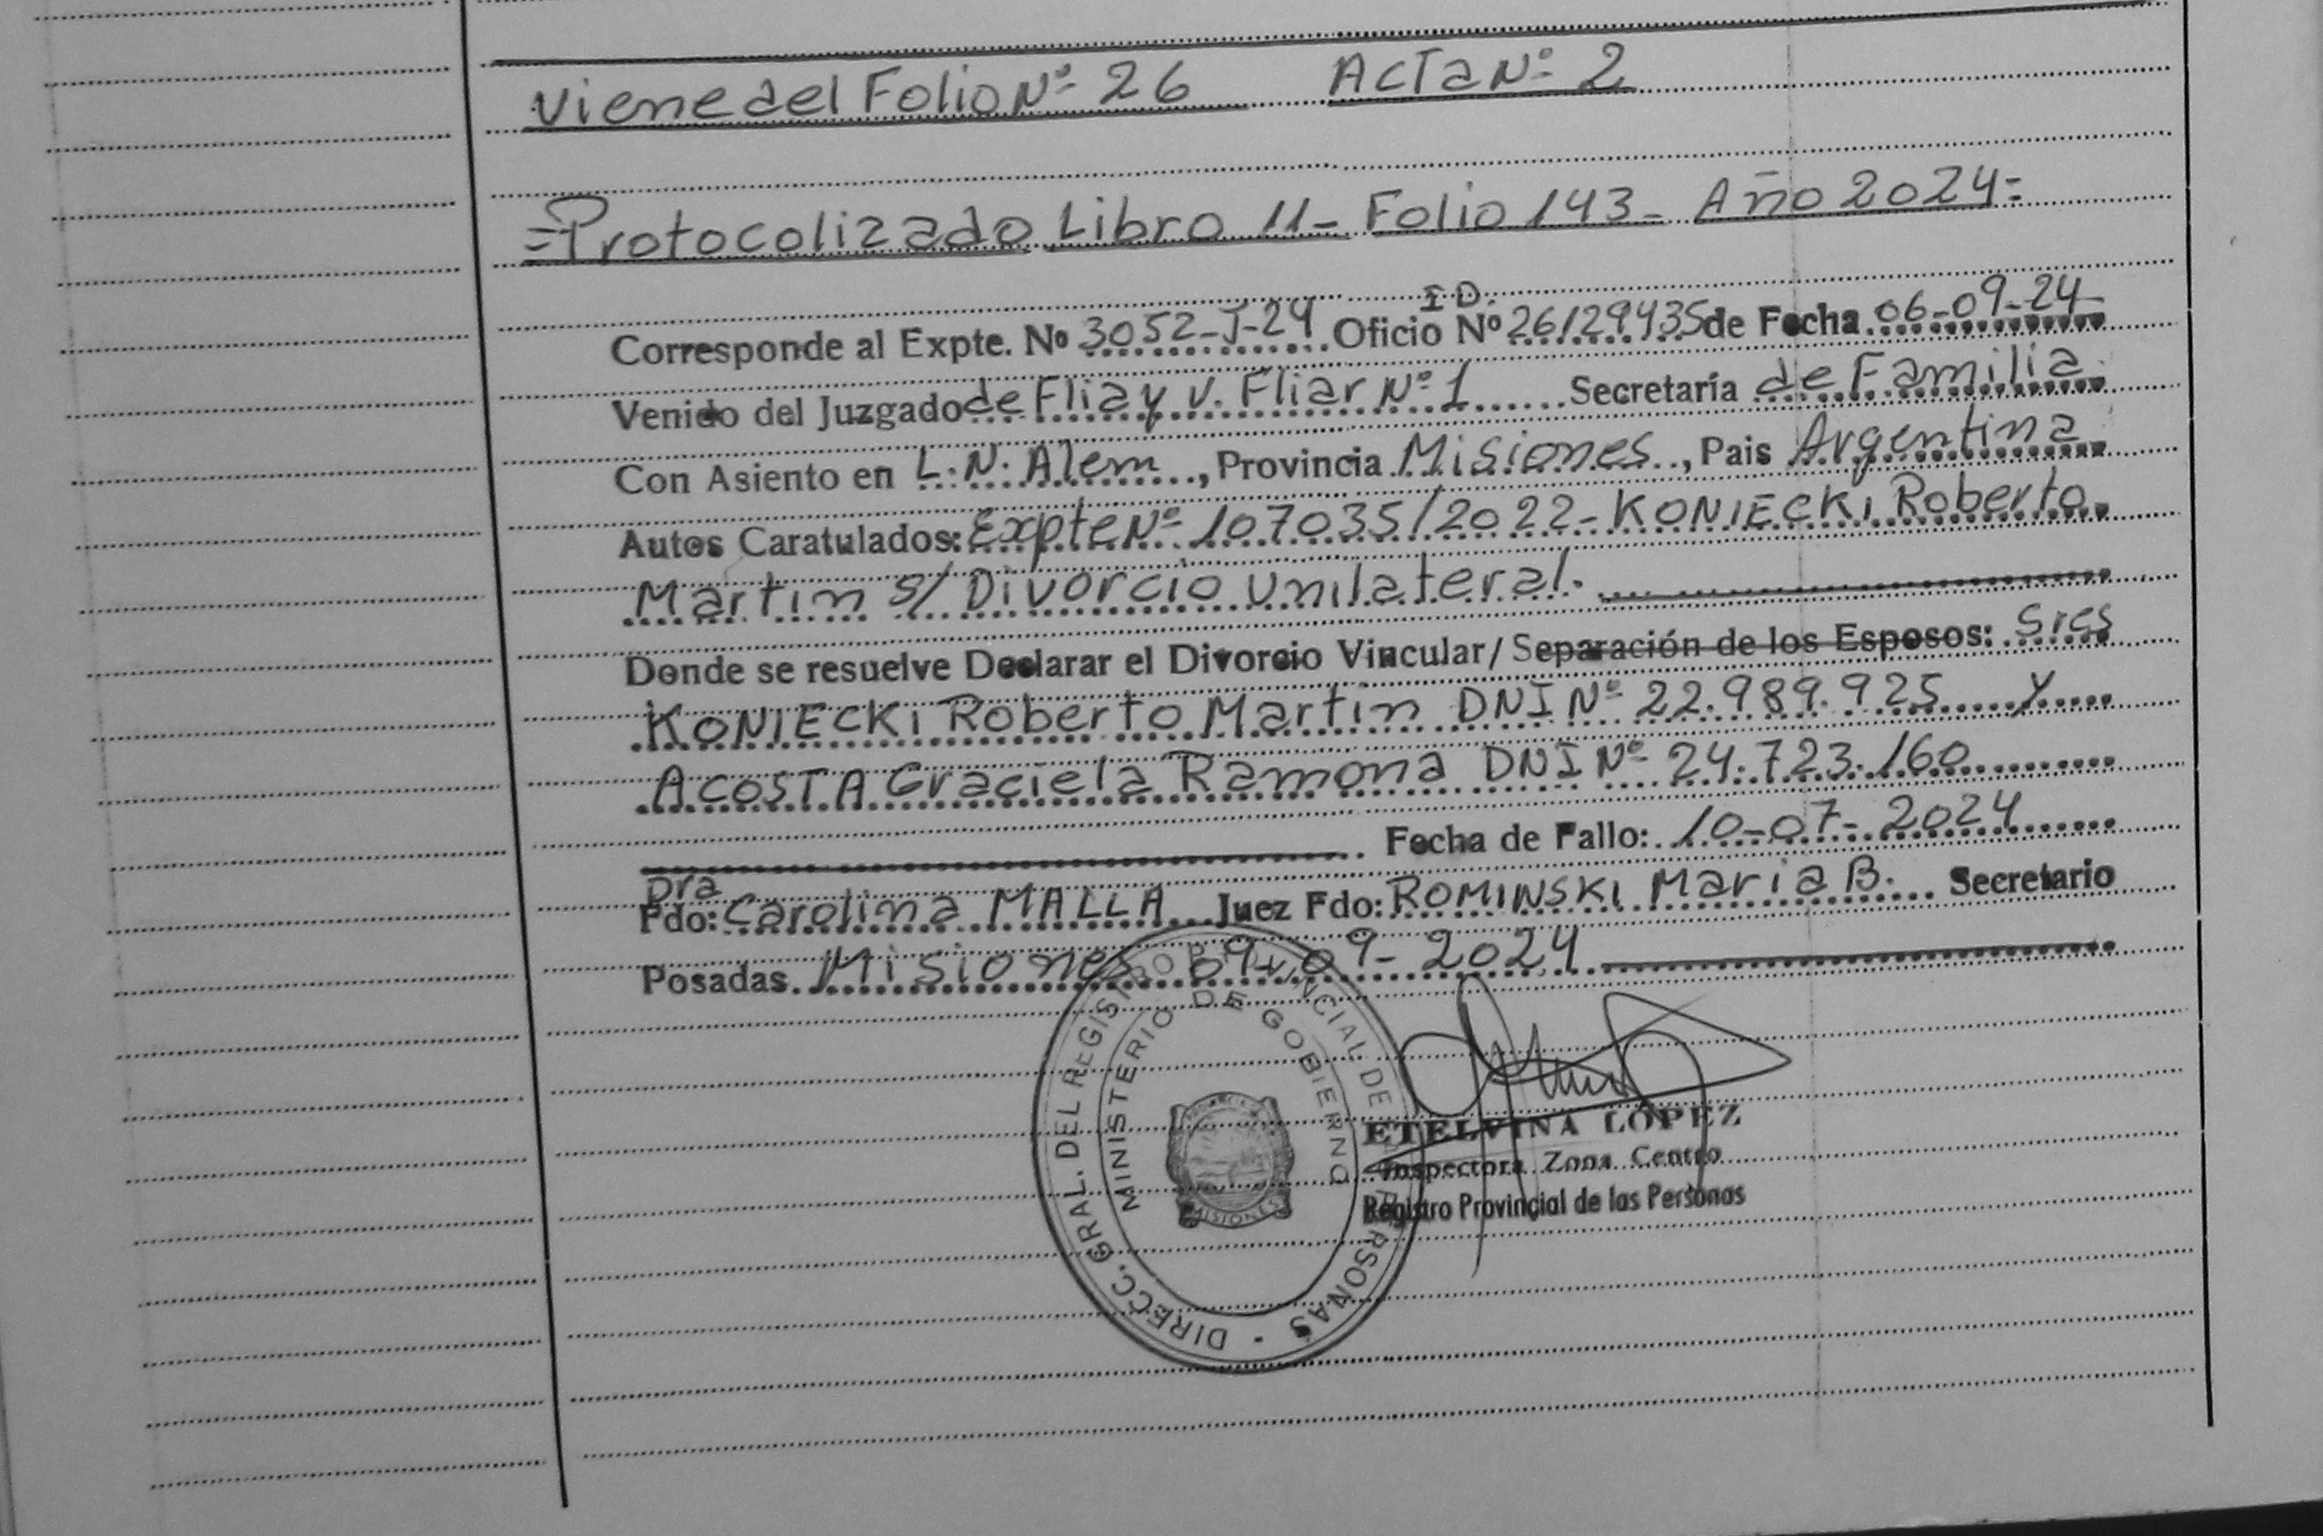 Viene del Folio Nº 26 Acta Nº 2
=Protocolizado Libro 11- Folio 143- Año 2024=
I D.
Corresponde al Expte. Nº 3052-J-24 Oficio Nº 26129435 de Fecha 06-09-24
Venido del Juzgado de Flia y V. Fliar Nº 1 Secretaría de Familia
Con Asiento en L.N. Alem, Provincia Misiones, Pais Argentina
Autos Caratulados: Expte Nº 107035/2022- KONIECKI Roberto
Martin s/ Divorcio Unilateral.
Donde se resuelve Declarar el Divorcio Vincular/Separación de los Esposos: Sres
KONIECKI Roberto Martin DNI Nº 22.989.925 y
ACOSTA Graciela Ramona DNI Nº 24.723.160
Fecha de Fallo: 10-07-2024
Dra
Fdo: Carolina MALLA Juez Fdo: ROMINSKI Maria B. Secretario
Posadas. Misiones 09-09-2024
DIRECC. GRAL. DEL REGISTRO PROVINCIAL DE LAS PERSONAS -
MINISTERIO DE GOBIERNO
MISIONES
ETELVINA LOPEZ
Inspectora Zona Centro
Registro Provincial de las Personas